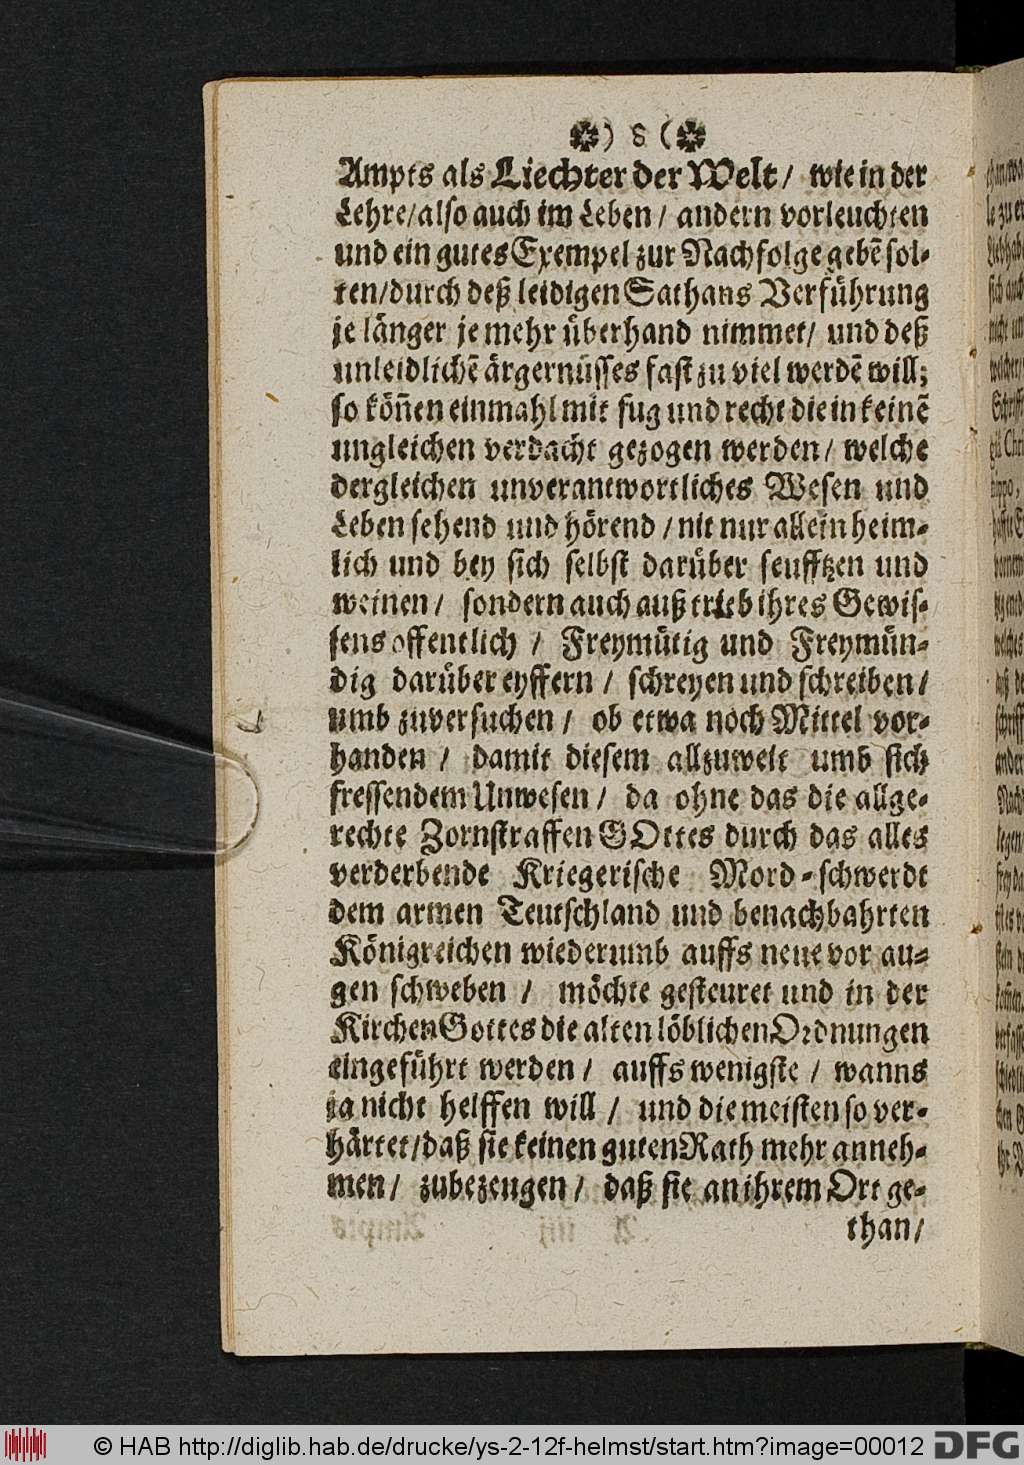 ) 8 (
Ampts als Liechter der Welt / wie in der
Lehre / also auch im Leben / andern vorleuchten
und ein gutes Exempel zur Nachfolge gebẽ sol-
ten / durch deß leidigen Sathans Verführung
je länger je mehr überhand nimmet / und deß
unleidlichẽ ärgernüsses fast zu viel werdẽ will;
so köñen einmahl mit fug und recht die in keinẽ
ungleichen verdacht gezogen werden / welche
dergleichen unverantwortliches Wesen und
Leben sehend und hörend / nit nur allein heim-
lich und bey sich selbst darüber seufftzen und
weinen / sondern auch auß trieb ihres Gewis-
sens offentlich / Freymütig und Freymün-
dig darüber eyffern / schreyen und schreiben /
umb zuversuchen / ob etwa noch Mittel vor-
handen / damit diesem allzuweit umb sich
fressendem Unwesen / da ohne das die allge-
rechte Zornstraffen GOttes durch das alles
verderbende Kriegerische Mord-schwerdt
dem armen Teutschland und benachbahrten
Königreichen wiederumb auffs neue vor au-
gen schweben / möchte gesteuret und in der
Kirchen Gottes die alten löblichen Ordnungen
eingeführt werden / auffs wenigste / wanns
ja nicht helffen will / und die meisten so ver-
härtet / daß sie keinen guten Rath mehr anneh-
men / zubezeugen / daß sie an ihrem Ort ge-
than /
© HAB http://diglib.hab.de/drucke/ys-2-12f-helmst/start.htm?image=00012
DFG